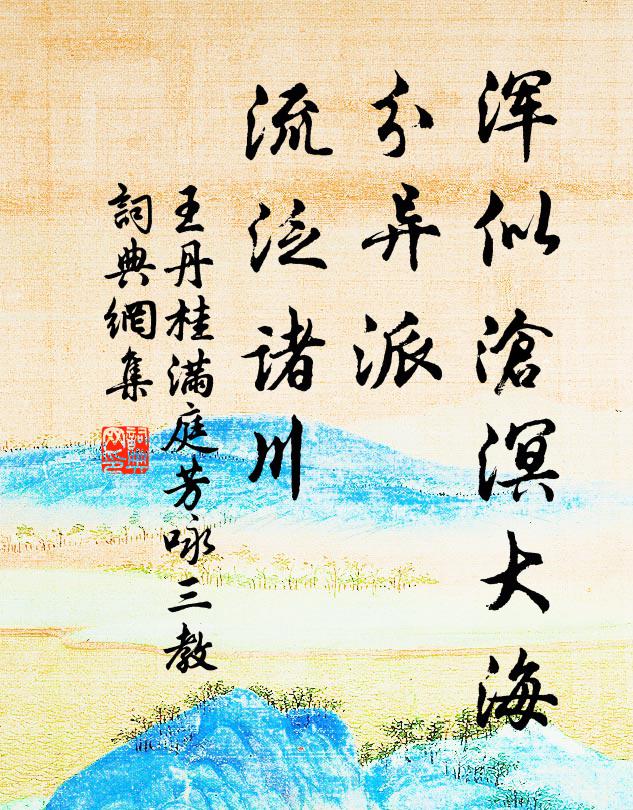 浑似滄溟大海
分异派
流泛诸川
王丹桂满庭芳咏三教
詞典網集